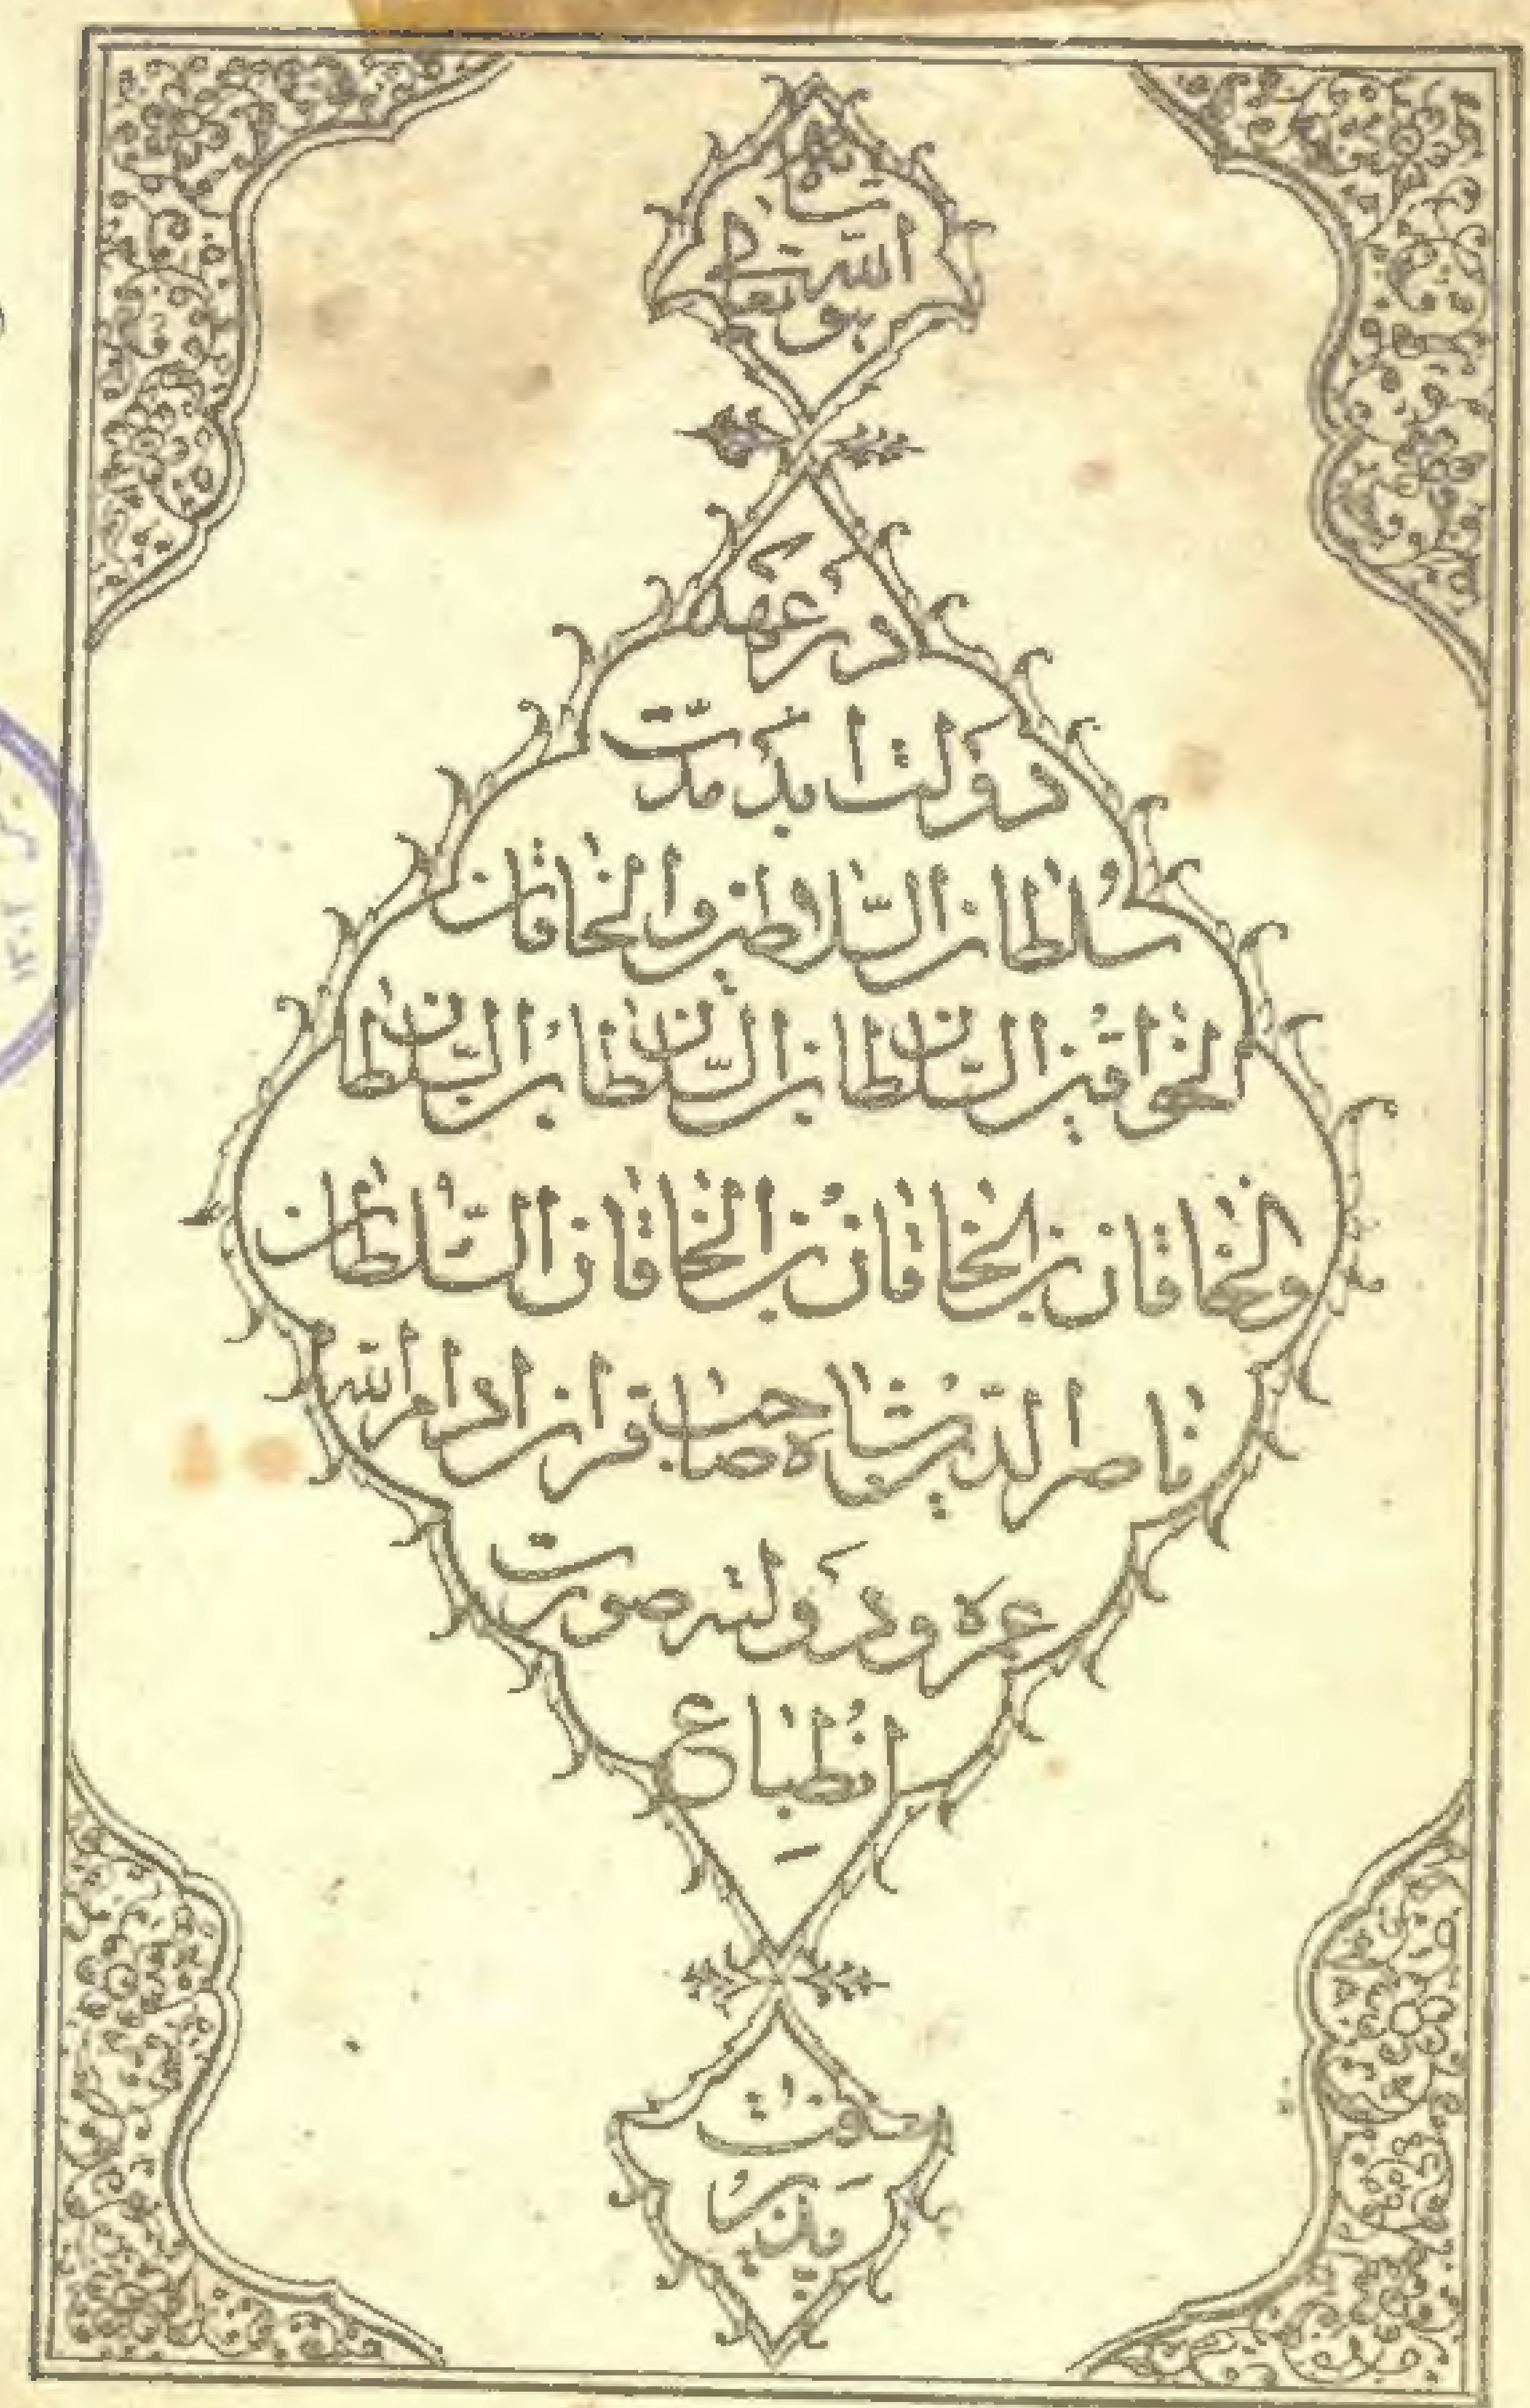 هو
الله تعالی
شأنه
در عهد
دولت ابد مدت
سلطان السلاطین و الخاقان
الخواقین السلطان بن السلطان بن السلطان بن السلطان
و الخاقان بن الخاقان بن الخاقان السلطان
ناصر الدین شاه صاحب قران ادام الله
عزه و دولته صورت
انطباع
یافت